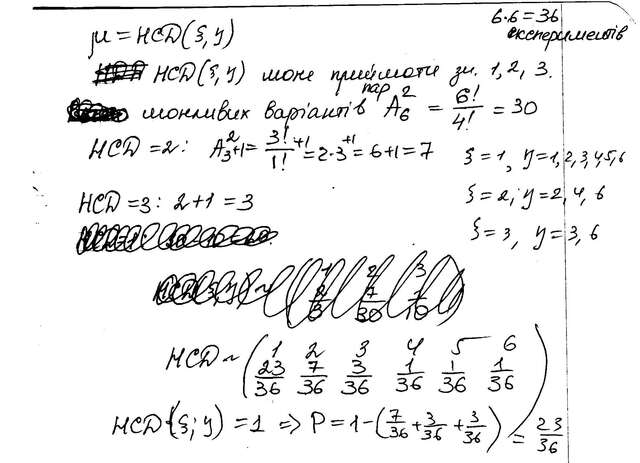 6·6=36
експериментів
μ = НСД(ξ, y)
НСД(ξ, y) може приймати зн. 1, 2, 3.
можливих варіантів пар A₆² = 6!/4! = 30
НСД=2: A₃²+1 = 3!/1! +1 = 2·3+1 = 6+1=7
ξ=1, y=1,2,3,4,5,6
НСД=3: 2+1=3
ξ=2; y=2,4,6
ξ=3, y=3,6
НСД ~ ( 1 2 3 4 5 6
23/36 7/36 3/36 1/36 1/36 1/36 )
НСД(ξ; y) = 1 => P = 1-(7/36 + 3/36 + 3/36) = 23/36